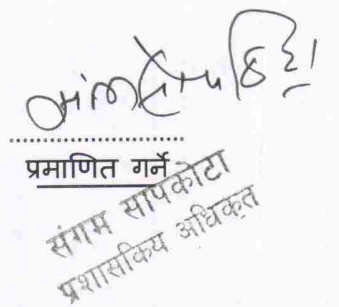 ....................................
प्रमाणित गर्ने
संगम सापकोटा
प्रशासकिय अधिकृत